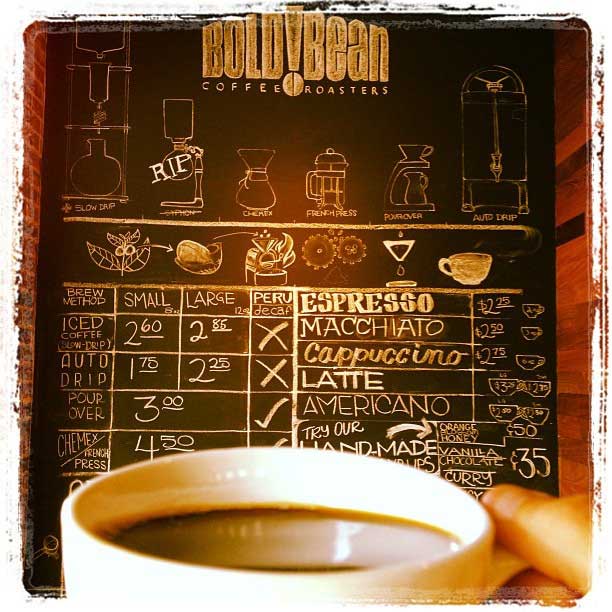 BOLD Bean
COFFEE ROASTERS
RIP
SLOW DRIP
SYPHON
CHEMEX
FRENCH PRESS
POUROVER
AUTO DRIP
BREW METHOD SMALL LARGE PERU decaf
ICED COFFEE (SLOW-DRIP) 2.60 2.85 X
AUTO DRIP 1.75 2.25 X
POUR OVER 3.00 ✓
CHEMEX/FRENCH PRESS 4.50
ESPRESSO $2.25
MACCHIATO $2.50
Cappuccino $2.75
LATTE
AMERICANO
TRY OUR
HAND-MADE
ORANGE HONEY
VANILLA
CHOCOLATE
CURRY